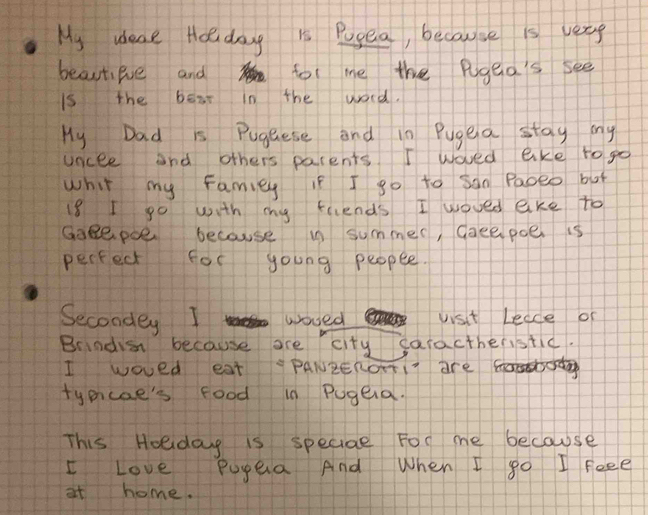 My ideal Holiday is Puglia, because is very
beautiful and for me the Puglia's see
is the best in the word.
My Dad is Pugliese and in Puglia stay my
uncle and others parents. I would like to go
whit my family if I go to San Paolo but
if I go with my friends I would like to
Gallipoli because in summer, Gallipoli is
perfect for young people.
Secondly I would visit Lecce or
Brindisi because are city caractheristic.
I would eat "PANZEROTTI" are
typical's food in Puglia.
This Holiday is special For me because
I Love Puglia And When I go I feel
at home.